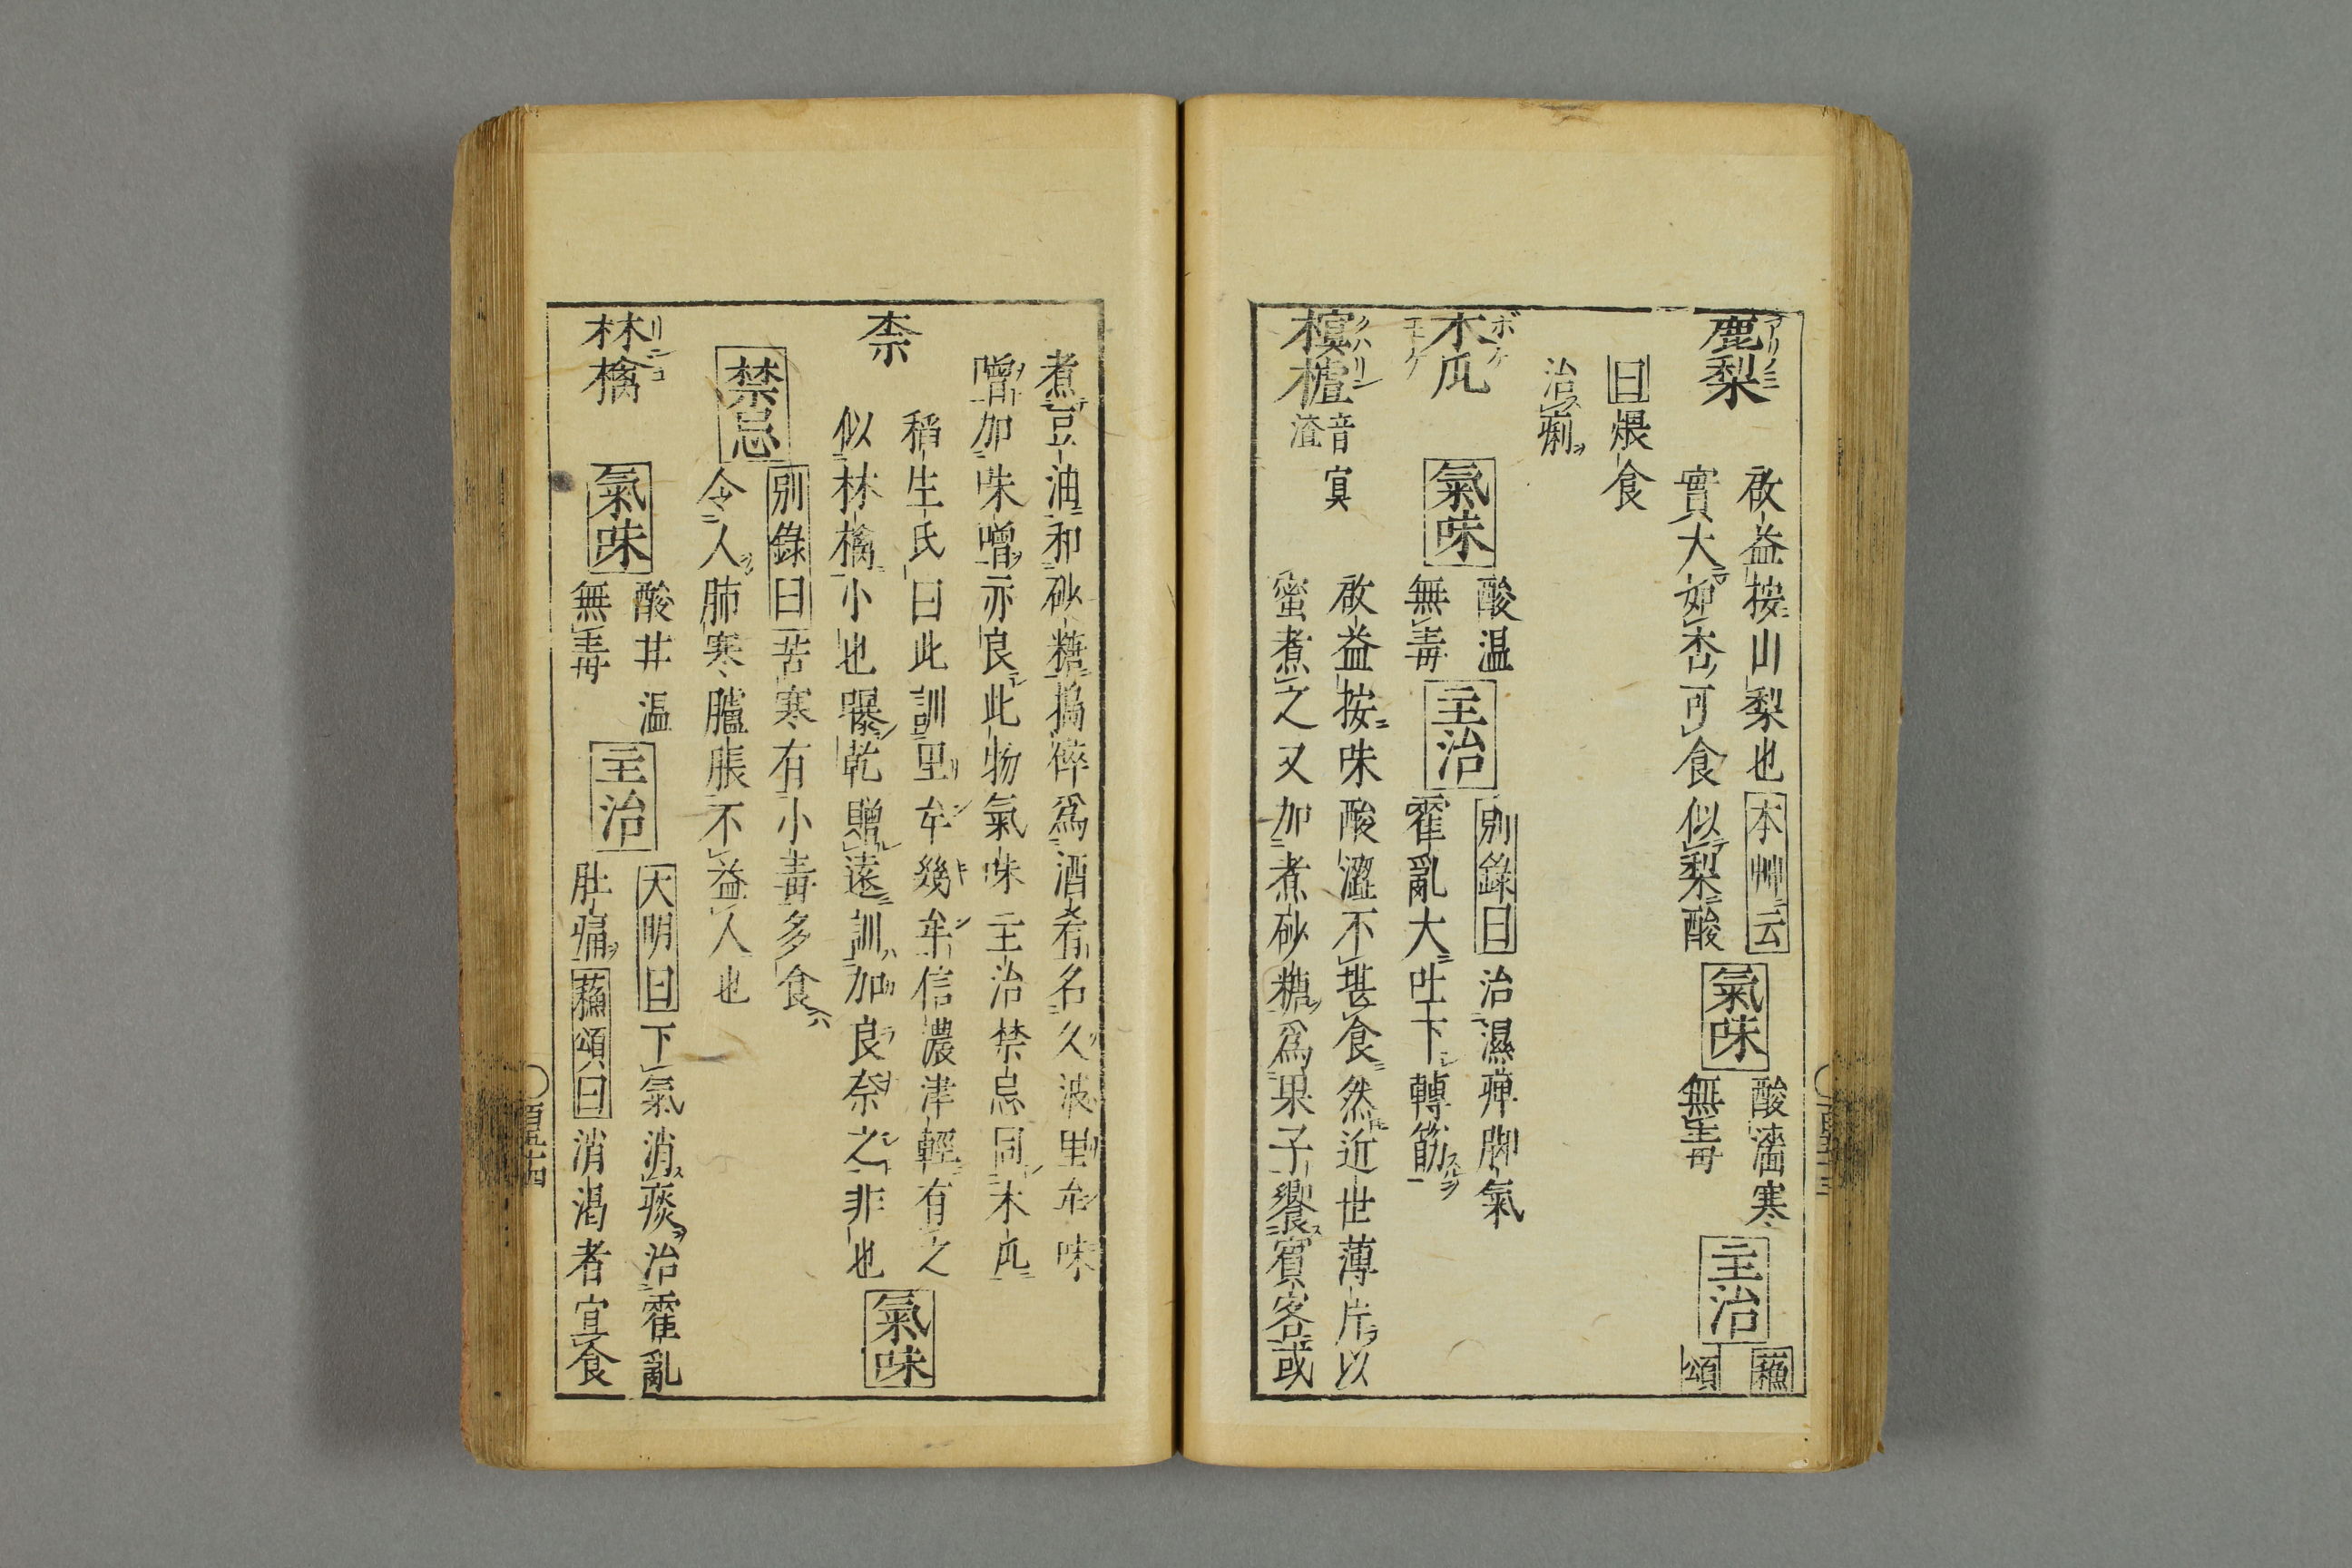 鹿梨
啟益按山梨也本艸云
實大如杏可食似梨酸
氣味
酸濇寒
無毒
主治
蘓
頌
曰煨食
治痢
木瓜
ボケ
モケ
氣味
酸温
無毒
主治
別錄曰治濕痺脚氣
霍亂大吐下轉筋
榠樝
クハリン
音冥
渣
啟益按味酸澀不堪食然近世薄片以
蜜煮之又加煮砂糖為果子饗賓客或
煮豆油和砂糖搗碎為酒肴名久波里牟味
噌加味噌亦良此物氣味主治禁忌同木瓜
柰
稻生氏曰此訓里牟幾牟信濃津輕有之
似林檎小也曝乾贈遠訓加良奈之非也
氣味
別錄曰苦寒有小毒多食
禁忌
令人肺寒臚脹不益人也
林檎
リンゴ
氣味
酸甘温
無毒
主治
大明曰下氣消痰治霍亂
肚痛蘓頌曰消渴者宜食
百五十四